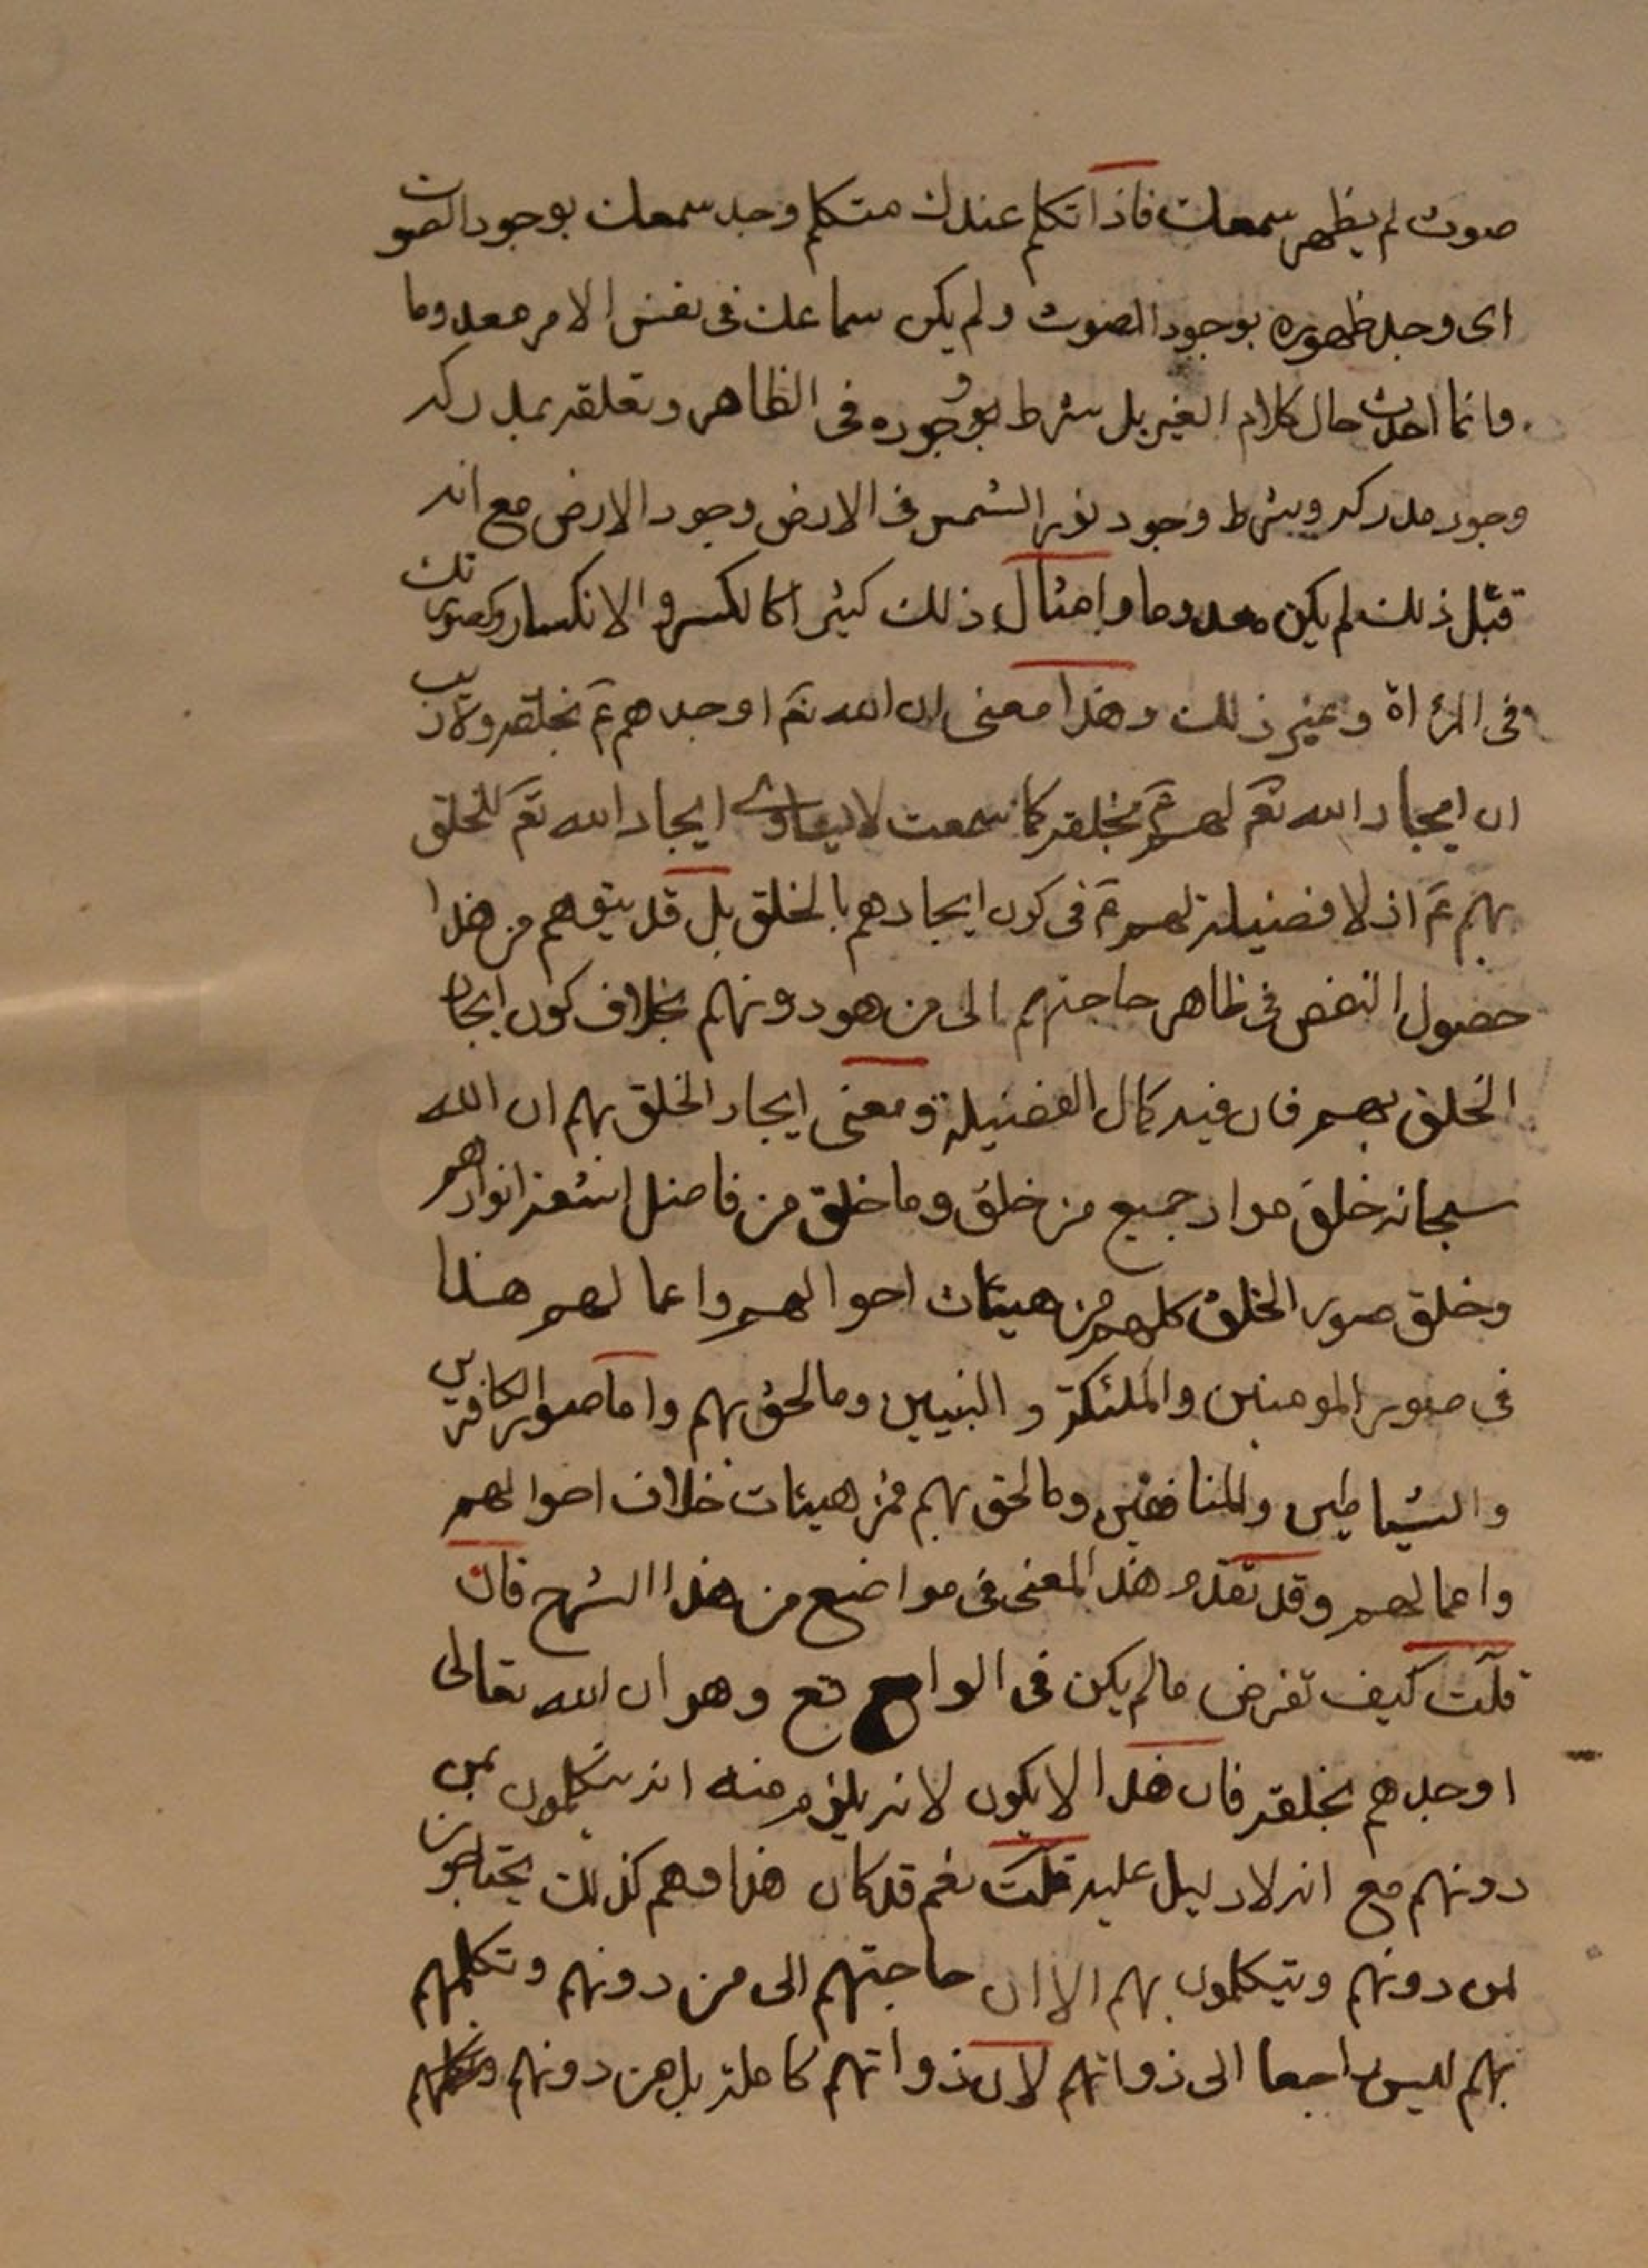 صوت لم يظهر سمعك فاذا تكلم عندك متكلم وجد سمعك بوجود الصوت
اى وجد ظهوره بوجود الصوت ولم يكن سماعك فى نفس الامر معدوما
وانما احدث حال كلام الغير بل شرط بووجوده فى الظاهر وتعلقه بمدركه
وجود مدركه وشرط وجود نور الشمس فى الارض وجود الارض مع انه
قبل ذلك لم يكن معدوما وامثال ذلك كثير كالكسر والانكسار وكصورتك
فى المرٔاة وغير ذلك وهذا معنى ان الله تع اوجدهم ع بخلقه ولاريب
ان ايجاد الله تع لهم ع بخلقه كما سمعت لايساوى ايجاد الله تع للخلق
بهم ع اذ لا فضيلة لهم ع فى كون ايجادهم بالخلق بل قد يتوهم من هذا
حصول النقص فى ظاهر حاجتهم الى من هو دونهم بخلاف كون ايجاد
الخلق بهم فان فيه كمال الفضيلة ومعنى ايجاد الخلق بهم ان الله
سبحانه خلق مواد جميع من خلق وما خلق من فاضل اشعة انوارهم
وخلق صور الخلق كلهم من هيئات احوالهم واعمالهم هذا
فى صور المومنين والملئكة و النبيين وما لحق بهم واما صور الكافرين
والشياطين والمنافقين وما لحق بهم فمن هيئات خلاف احوالهم
واعمالهم وقد تقدم هذا المعنى فى مواضع من هذا الشرح فان
قلت كيف تفرض مالم يكن فى الواقع وهو ان الله تعالى
اوجدهم بخلقه فان هذا لايكون لانه يلزم منه انه يتكلمون بمن
دونهم مع انه لادليل عليه قلت نعم قد كان هذا وهم كذلك يحتاجون
لمن دونهم ويتكلمون بهم الا ان حاجتهم الى من دونهم وتكلمهم
بهم ليس راجعا الى ذواتهم لان ذواتهم كاملة بل من دونهم